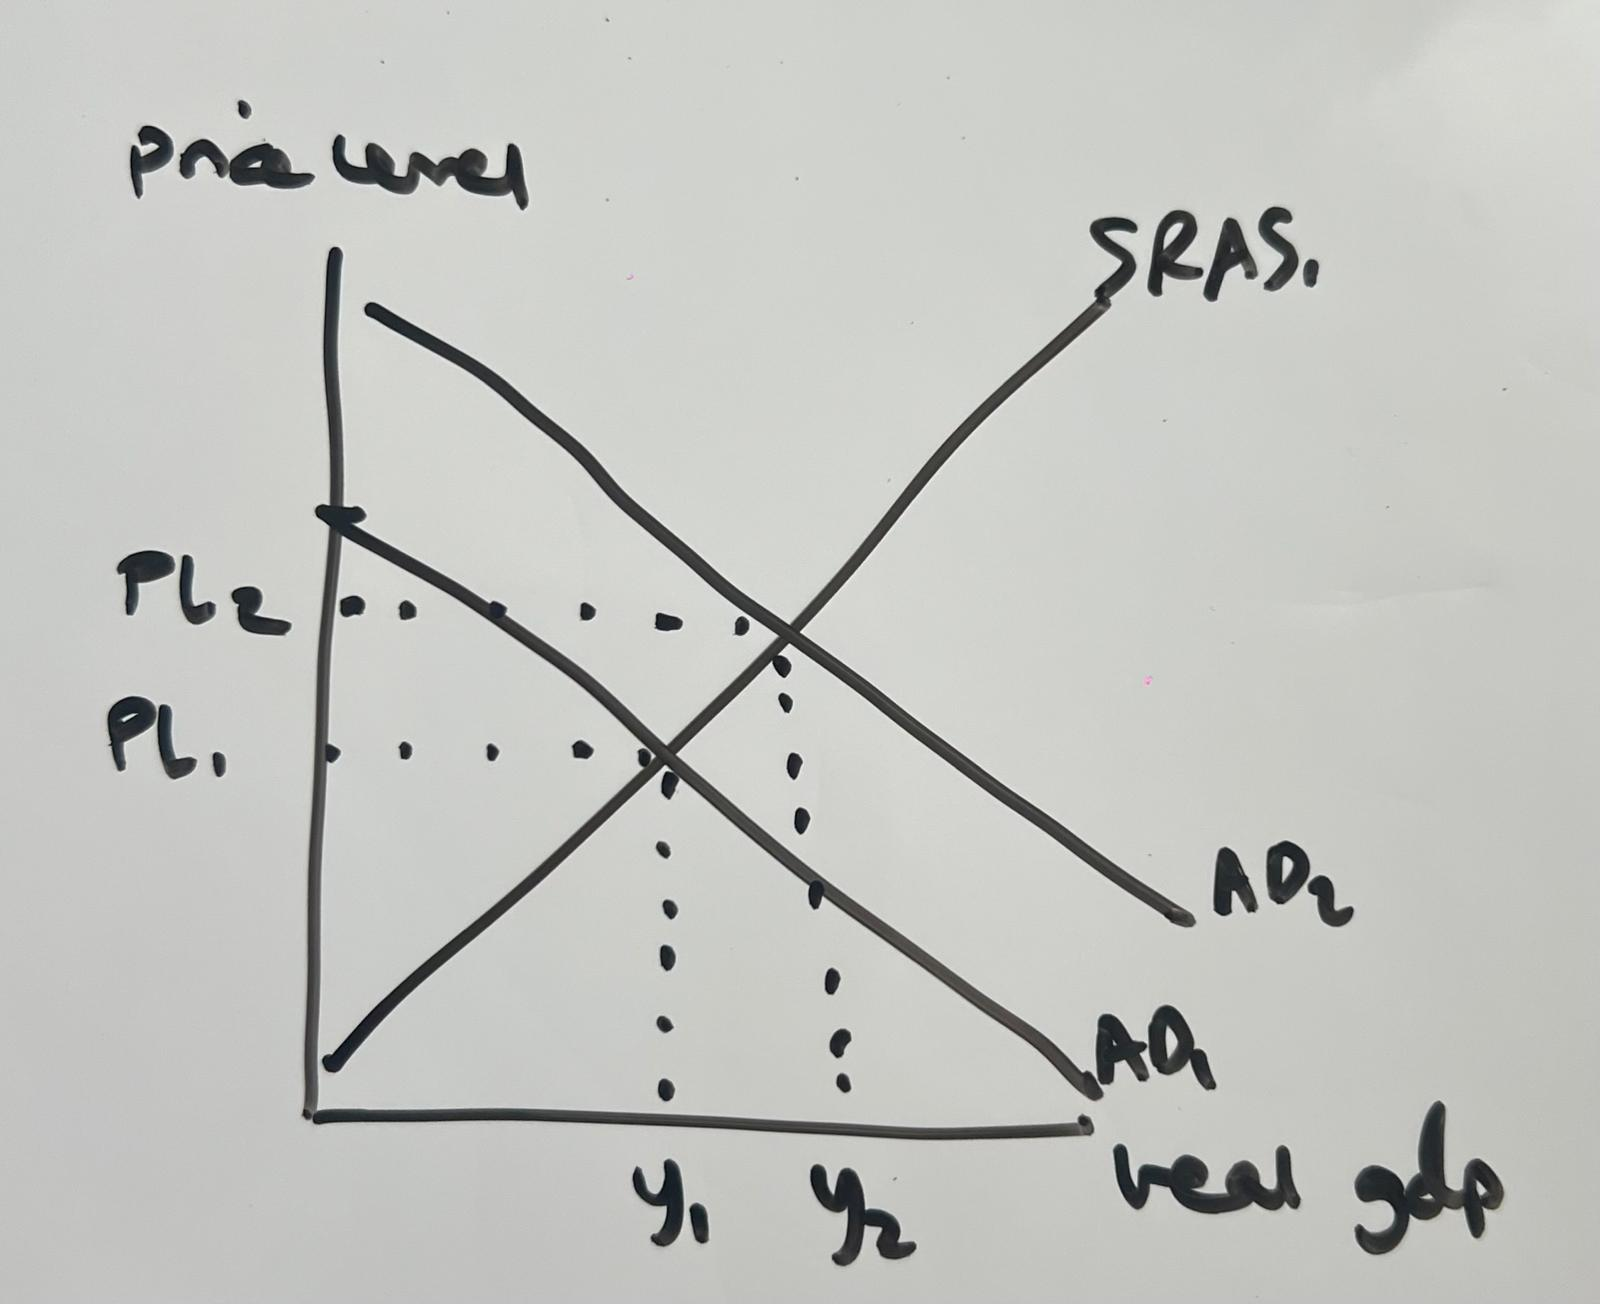 price level
SRAS₁
PL₂
PL₁
AD₂
AD₁
y₁ y₂ real gdp